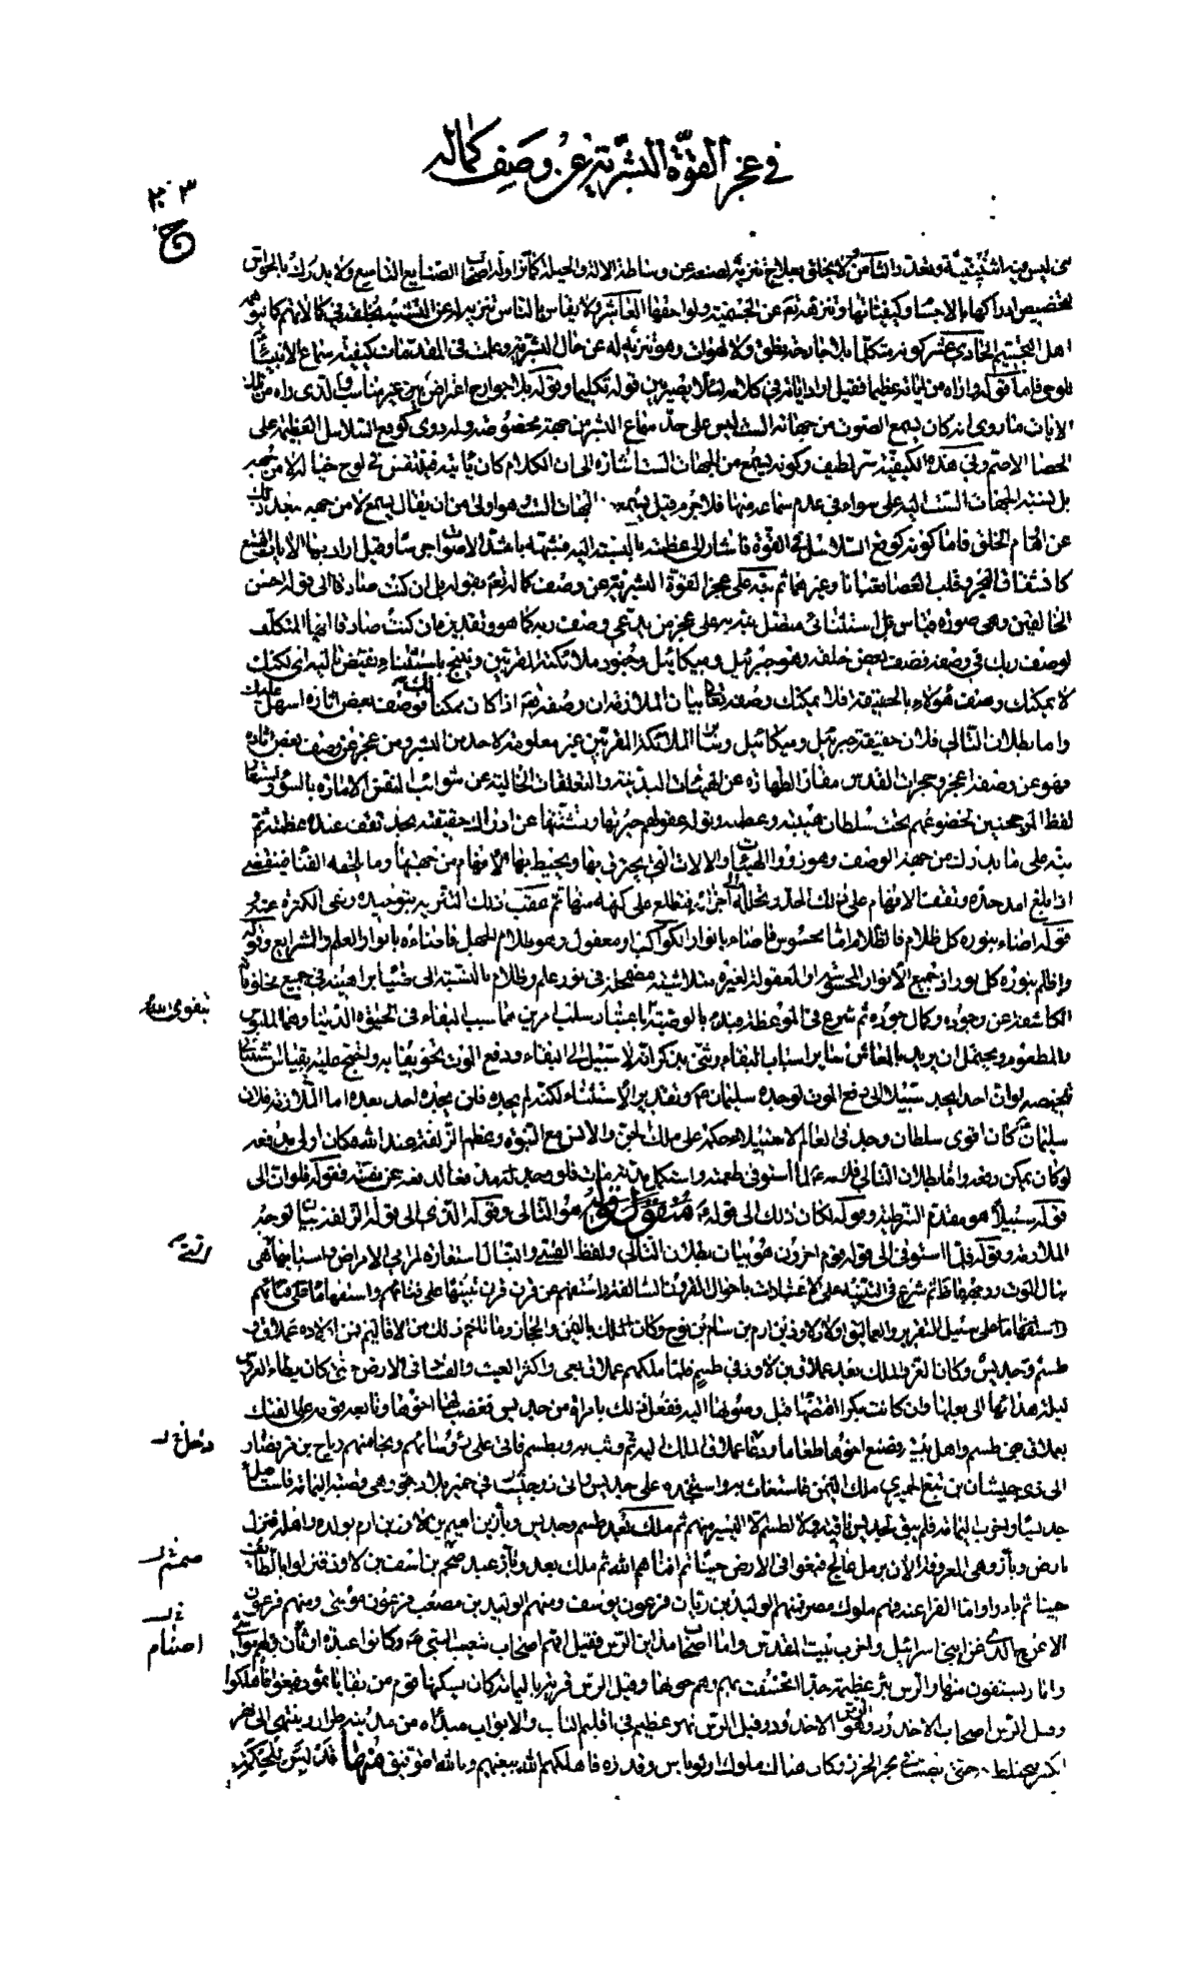 في عجز القوة البشرية عن وصف كماله
٣٠٣
ج
ليس فيه اثنينية وتعدد والثامن لا يخلق بعلاج تنزيه لصنعه عن وساطة الالة والحيلة كما تزاوله اصحاب الصنايع التاسع ولا يدرك بالحواس
لتخصيص ادراكها بالاجسام وكيفياتها وتنزهه تع عن الجسمية ولواحقها العاشر ولا يقاس بالناس تنزيه له عن التشبيه بخلقه في كمالاتهم كما تتوهمه
اهل التجسيم الحادي عشر كونه متكلما بلا جارحة نطق ولا لهوات وهو تنزيه له عن حال البشرية وعلمت في المقدمات كيفية سماع الانبياء
للوحي فاما قوله واراه من اياته عظيما فقيل اراد اياته في كلامه لئلا يصير بين قوله تكليما وقوله بلا جوارح اعتراض اجنبي غير مناسب والذي راه من تلك
الايات ما روي انه كان يسمع الصوت من جهاته الست ليس على حد سماع البشر من جهة مخصوصة وله دوي كوقع السلاسل العظيمة على
الحصا الاصم وفي هذه الكيفية سر لطيف وكونه يسمع من الجهات الست اشارة الى ان الكلام كان ياتيه فينتقش في لوح خياله لا من جهة
بل نسبة الجهات الست اليه على سواء في عدم سماعه منها فلا جرم قيل يسمع من الجهات الست وهو اولى من ان يقال يسمع لا من جهة لبعد ذلك
عن افهام الخلق فاما كونه كوقع السلاسل في القوة فاشار الى عظمته بالنسبة اليه فشبهه باشد الاصوات جرسا وقيل اراد بها الايات التسع
كانشقاق البحر وقلب العصا ثعبانا وغيرهما ثم نبه على عجز القوة البشرية عن وصف كماله تع بقوله بل ان كنت صادقا الى قوله احسن
الخالقين وهي صورة قياس استثنائي متصل نبه به على عجز من يدعي وصف ربه كما هو وتقديره ان كنت صادقا ايها المتكلف
لوصف ربك في وصفه فصف بعض خلقه وهو جبرئيل وميكائيل وجنود ملائكته المقربين وينتج باستثناء نقيض تاليه اي لكنك
لا يمكنك وصف هؤلاء بالحقيقة فلا يمكنك وصفه تعالى بيان الملازمة ان وصفه تع اذا كان ممكنا لك فوصف بعض اثاره اسهل عليك
واما بطلان التالي فلان حقيقة جبرئيل وميكائيل وساير الملائكة المقربين غير معلومة لاحد من البشر ومن عجز عن وصف بعض اثاره
فهو عن وصفه اعجز وحجرات القدس مقار الطهارة عن الهيئات البدنية والتعلقات الخالية عن شوائب النفس الامارة بالسوء واستعار
لفظ المرجحنين لخضوعهم تحت سلطان هيبته وعظمته وتوله عقولهم حيرتها وتشتتها عن ادراك حقيقته بحد تقف عنده عظمته ثم
نبه على ما يدرك من جهة الوصف وهو ذووا الهيئات والالات التي يحترف بها ويحيط بها الافهام من جهتها وما يلحقه الفناء فينقضي
اذا بلغ امد حده وتقف الافهام على ذلك الحد وتحلله الى اجزائه فتطلع على كنهه منها ثم عقب ذلك التنزيه بتوحيده ونفى الكثرة عنه
قوله اضاء بنوره كل ظلام فالظلام اما محسوس فاضاءه بانوار الكواكب او معقول وهو ظلام الجهل فاضاءه بانوار العلم والشرايع وقوله
واظلم بنوره كل نور اذ جميع الانوار المحسوسة او المعقولة لغيره متلاشية مضمحلة في نور علمه وظلام بالنسبة الى ضياء براهينه في جميع مخلوقاته
الكاشفة عن وجوده وكمال جوده ثم شرع في الموعظة فبدء بالوصية بتقوى الله باعتبار سلب امرين هما سبب البقاء في الحيوة الدنيا وهما الملبوس
والمطعوم ويحتمل ان يريد بالمعاش ساير اسباب البقاء وثنى بذكر انه لا سبيل الى البقاء ودفع الموت تخويفا به واحتج عليه بقياس استثنائي
تلخيصه لو ان احدا يجد سبيلا الى دفع الموت لوجده سليمان ع وتقدير الاستثناء لكنه لم يجده فلن يجده احد بعده اما الملازمة فلان
سليمان ع كان اقوى سلطان وجد في العالم لاستيلاء حكمه على ملك الجن والانس مع النبوة وعظم الزلفة عند الله فكان اولى بدفعه
لو كان يمكن دفعه واما بطلان التالي فلانه ع لما استوفى طعمته واستكمل مدته مات فلو وجد لدفعه عن نفسه فقوله فلو ان الى
قوله سبيلا هو مقدم الشرطية وقوله لكان ذلك الى قوله مقول قوله هو التالي وقوله الذي الى قوله الزلفة بيان لوجه
الملازمة وقوله فلما استوفى الى قوله قوم اخرون هو بيان بطلان التالي ولفظ القسي والنبال استعارة لمرامي الامراض واسبابها التي هي
نبال الموت ثم شرع في التنبيه على الاعتبارات باحوال القرون السالفة واستفهم عن قرن قرن تنبيها على فنائهم
استفهاما على سبيل التقرير والعمالقة اولاد لاوذ بن ارم بن سام بن نوح وكان الملك باليمن والحجاز وما تاخم ذلك من الاقاليم فمن اولاده عملاق و
طسم وجديس وكان العز والملك بعد عملاق بن لاوذ في طسم فلما ملكهم عملاق بغي واكثر العبث والفساد في الارض حتى كان يطاء العروس
ليلة هدائها الى بعلها وان كانت بكرا افتضها قبل وصولها اليه ففعل ذلك بامراة من جديس فغضب لها اخوها وتابعه قومه على الفتك
بعملاق بن طسم واهل بيته فصنع اخوها طعاما ودعا عملاق الملك اليه ثم وثب به وبطسم فاتى على رؤسائهم ونجا منهم رياح بن مر فصار
الى ذي جيشان بن تبع الحميري ملك اليمن فاستغاث به واستنجده على جديس فاتى ذو جيشان في حمير بلاد جو وهي قصبة اليمامة فاستاصل
جديسا واخرب اليمامة فلم يبق لجديس باقية ولا لطسم الا اليسير منهم ثم ملك بعد طسم وجديس وبار بن اميم بن لاوذ بن ارم بولده واهله فنزل
بارض وبار وهي المعروفة الان برمل عالج فبغوا في الارض حينا ثم افناهم الله ثم ملك بعد وبار عبد ضخم بن اسف بن لاوذ فنزلوا بالطائف
حينا ثم بادوا واما الفراعنة فهم ملوك مصر فمنهم الوليد بن ريان فرعون يوسف ومنهم الوليد بن مصعب فرعون موسى ومنهم فرعون
الاعرج الذي غزا بني اسرائيل واخرب بيت المقدس واما اصحاب مداين الرس فقيل انهم اصحاب شعيب النبي ع وكانوا عبدة اوثان ولهم مواشي
وابار يستقون منها والرس بئر عظيمة جدا انخسفت بهم وهم حولها وقيل الرس قرية باليمامة كان يسكنها قوم من بقايا ثمود فبغوا فاهلكوا
وقيل الرس اصحاب الاخدود والرس هو الاخدود وقيل الرس نهر عظيم في اقليم الباب والابواب مبداه من مدينة طراز وينتهي الى نهر
الكر فيختلط به حتى يصب في بحر الخزر وكان هناك ملوك اولو باس وقدرة فاهلكهم الله ببغيهم وبالله التوفيق منها قد لبس للحكمة
بتقوى الله
القسي
دخل
ضخم
اصنام